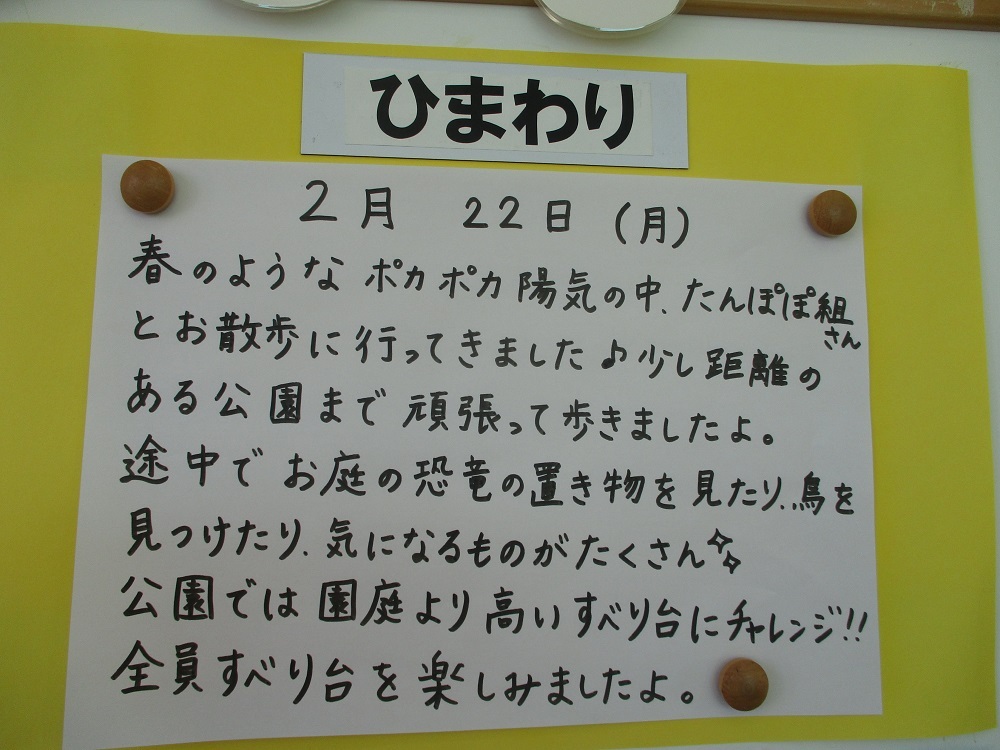 ひまわり
2月 22日 (月)
春のような ポカポカ陽気の中、たんぽぽ組さん
とお散歩に行ってきました♪少し距離の
ある公園まで頑張って歩きましたよ。
途中でお庭の恐竜の置き物を見たり、鳥を
見つけたり、気になるものがたくさん✧✧
公園では園庭より高いすべり台にチャレンジ!!
全員すべり台を楽しみましたよ。